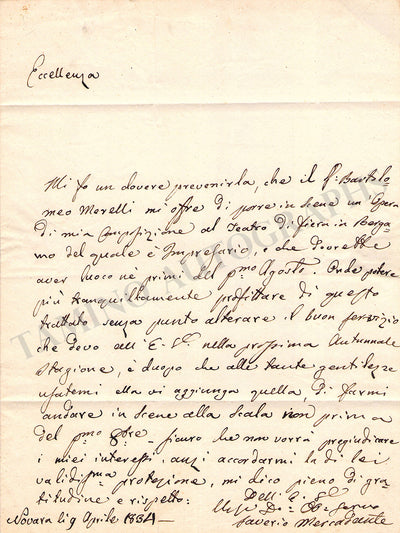 Eccellenza
Mi fo un dovere prevenirla, che il Sr. Bartolo
meo Merelli mi offre di porre in scene un Opera
di mia Composizione al Teatro di fiera in Berga
mo del quale è Impresario, e che dovrebbe
aver luoco né primi del pmo Agosto. Onde potere
più tranquillamente profittare di questo
trattato senza punto alterare il buon servizio
che devo all' E. V. nella prossima Autunnale
Stagione, è duopo che alle tante gentilezze
usatemi ella vi aggiunga quella, di farmi
andare in scene alla Scala non prima
del pmo 8bre - sicuro che non vorrà pregiudicare
i miei interessi, anzi accordarmi la di lei
validissma protezione, mi dico pieno di gra
titudine e rispetto:
Dell' E. V.
Novara li 9 Aprile 1834
Saverio Mercadante
TAMINO AUTOGRAPHS